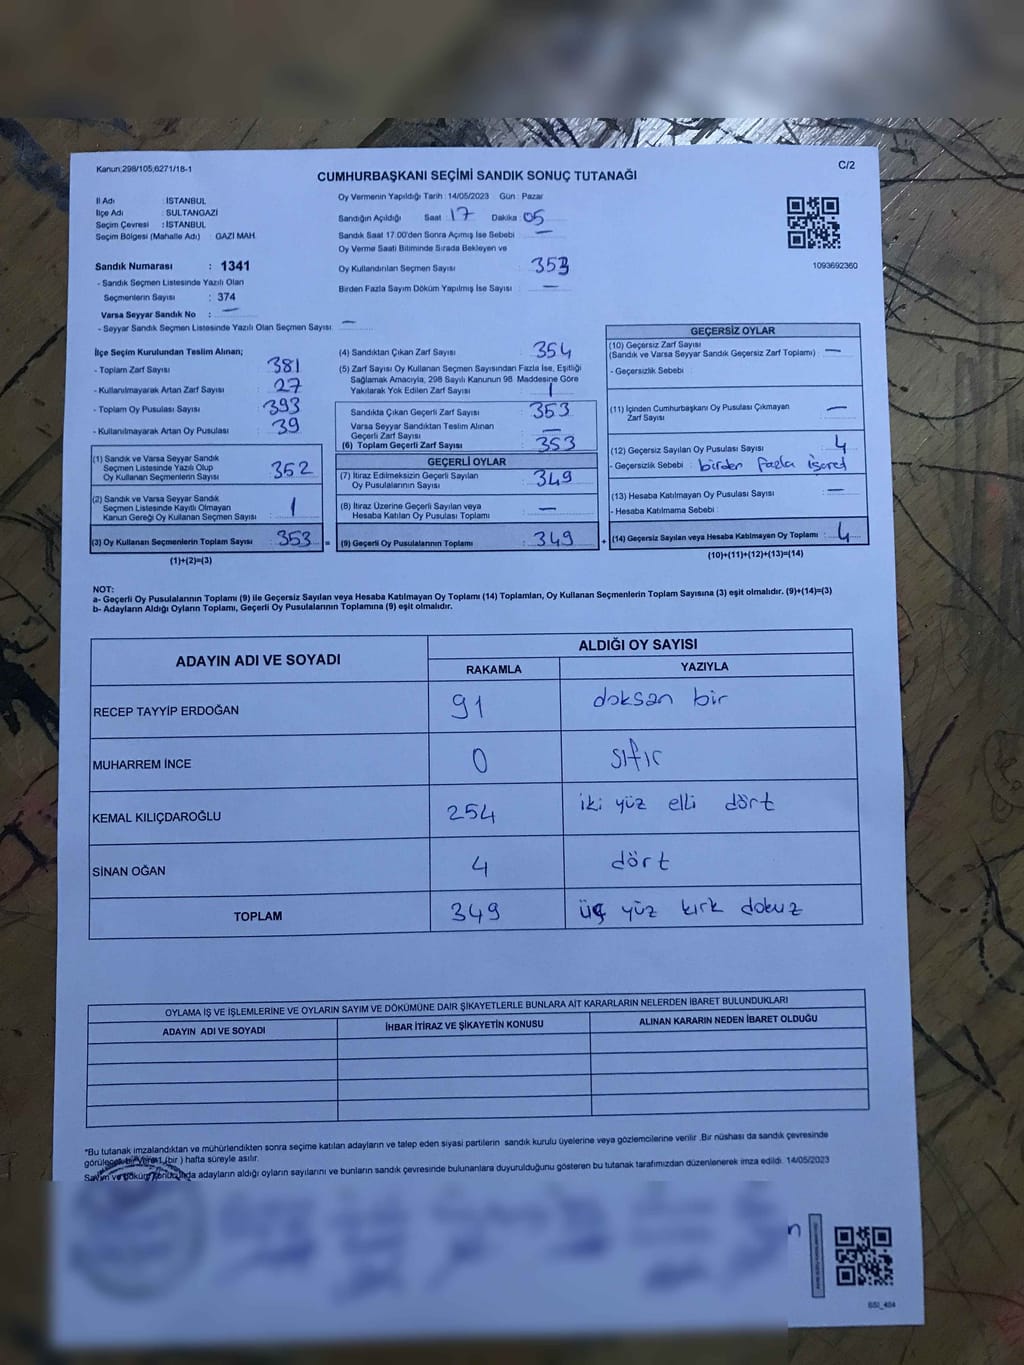 Kanun:298/105,6271/18-1
C/2
CUMHURBAŞKANI SEÇİMİ SANDIK SONUÇ TUTANAĞI
İl Adı : İSTANBUL
İlçe Adı : SULTANGAZİ
Seçim Çevresi : İSTANBUL
Seçim Bölgesi (Mahalle Adı) : GAZİ MAH.
Oy Vermenin Yapıldığı Tarih : 14/05/2023 Gün : Pazar
Sandığın Açıldığı Saat : 17 Dakika : 05
Sandık Saat 17:00'den Sonra Açımış İse Sebebi : —
Oy Verme Saati Bitiminde Sırada Bekleyen ve
Oy Kullandırılan Seçmen Sayısı : 353
Birden Fazla Sayım Döküm Yapılmış İse Sayısı : —
1093692360
Sandık Numarası : 1341
- Sandık Seçmen Listesinde Yazılı Olan
Seçmenlerin Sayısı : 374
Varsa Seyyar Sandık No : —
- Seyyar Sandık Seçmen Listesinde Yazılı Olan Seçmen Sayısı: —
İlçe Seçim Kurulundan Teslim Alınan;
- Toplam Zarf Sayısı : 381
- Kullanılmayarak Artan Zarf Sayısı : 27
- Toplam Oy Pusulası Sayısı : 393
- Kullanılmayarak Artan Oy Pusulası : 39
(1) Sandık ve Varsa Seyyar Sandık
Seçmen Listesinde Yazılı Olup
Oy Kullanan Seçmenlerin Sayısı : 352
(2) Sandık ve Varsa Seyyar Sandık
Seçmen Listesinde Kayıtlı Olmayan
Kanun Gereği Oy Kullanan Seçmen Sayısı : 1
(3) Oy Kullanan Seçmenlerin Toplam Sayısı : 353 =
(1)+(2)=(3)
(4) Sandıktan Çıkan Zarf Sayısı : 354
(5) Zarf Sayısı Oy Kullanan Seçmen Sayısından Fazla İse, Eşitliği
Sağlamak Amacıyla, 298 Sayılı Kanunun 98. Maddesine Göre
Yakılarak Yok Edilen Zarf Sayısı : 1
Sandıkta Çıkan Geçerli Zarf Sayısı : 353
Varsa Seyyar Sandıktan Teslim Alınan
Geçerli Zarf Sayısı : —
(6) Toplam Geçerli Zarf Sayısı : 353
GEÇERLİ OYLAR
(7) İtiraz Edilmeksizin Geçerli Sayılan
Oy Pusulalarının Sayısı : 349
(8) İtiraz Üzerine Geçerli Sayılan veya
Hesaba Katılan Oy Pusulası Toplamı : —
(9) Geçerli Oy Pusulalarının Toplamı : 349 +
GEÇERSİZ OYLAR
(10) Geçersiz Zarf Sayısı
(Sandık ve Varsa Seyyar Sandık Geçersiz Zarf Toplamı) : —
- Geçersizlik Sebebi :
(11) İçinden Cumhurbaşkanı Oy Pusulası Çıkmayan
Zarf Sayısı : —
(12) Geçersiz Sayılan Oy Pusulası Sayısı : 4
- Geçersizlik Sebebi : birden fazla işaret
(13) Hesaba Katılmayan Oy Pusulası Sayısı : —
- Hesaba Katılmama Sebebi :
(14) Geçersiz Sayılan veya Hesaba Katılmayan Oy Toplamı : 4
(10)+(11)+(12)+(13)=(14)
NOT:
a- Geçerli Oy Pusulalarının Toplamı (9) ile Geçersiz Sayılan veya Hesaba Katılmayan Oy Toplamı (14) Toplamları, Oy Kullanan Seçmenlerin Toplam Sayısına (3) eşit olmalıdır. (9)+(14)=(3)
b- Adayların Aldığı Oyların Toplamı, Geçerli Oy Pusulalarının Toplamına (9) eşit olmalıdır.
ADAYIN ADI VE SOYADI
ALDIĞI OY SAYISI
RAKAMLA YAZIYLA
RECEP TAYYİP ERDOĞAN 91 doksan bir
MUHARREM İNCE 0 sıfır
KEMAL KILIÇDAROĞLU 254 iki yüz elli dört
SİNAN OĞAN 4 dört
TOPLAM 349 üç yüz kırk dokuz
OYLAMA İŞ VE İŞLEMLERİNE VE OYLARIN SAYIM VE DÖKÜMÜNE DAİR ŞİKAYETLERLE BUNLARA AİT KARARLARIN NELERDEN İBARET BULUNDUKLARI
ADAYIN ADI VE SOYADI İHBAR İTİRAZ VE ŞİKAYETİN KONUSU ALINAN KARARIN NEDEN İBARET OLDUĞU
*Bu tutanak imzalandıktan ve mühürlendikten sonra seçime katılan adayların ve talep eden siyasi partilerin sandık kurulu üyelerine veya gözlemcilerine verilir. Bir nüshası da sandık çevresinde
görülecek bir yere 1 (bir) hafta süreyle asılır.
Sayım ve döküm sonucunda adayların aldığı oyların sayılarını ve bunların sandık çevresinde bulunanlara duyurulduğunu gösteren bu tutanak tarafımızdan düzenlenerek imza edildi. 14/05/2023